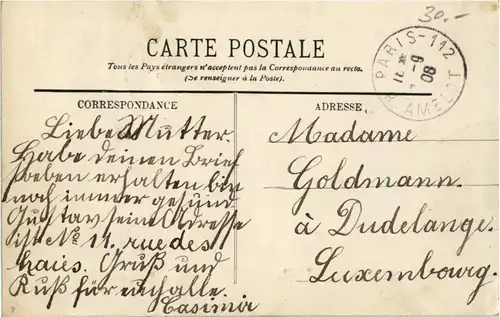 30.-
CARTE POSTALE
Tous les Pays étrangers n'acceptent pas la Correspondance au recto.
(Se renseigner à la Poste).
PARIS-112
R. AMELOT
11 * -9
08
CORRESPONDANCE
Liebe Mutter.
Habe deinen Brief
soeben erhalten bin
noch immer gesund
Gustav seine Adresse
ist No 11. rue des
haies. Gruß und
Kuß für euch alle.
Casimir
ADRESSE
Madame
Goldmann.
à Dudelange.
Luxembourg.